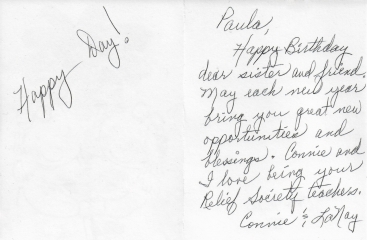 Happy Day!
Paula,
Happy Birthday
dear sister and friend.
May each new year
bring you great new
opportunities and
blessings. Connie and
I love being your
Relief Society teachers.
Connie & LaNay